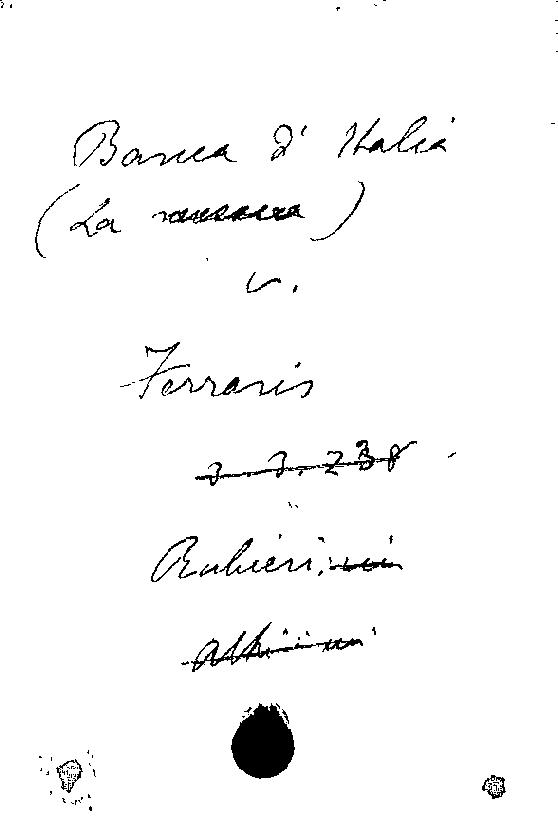 Banca d' Italia
(La
v.
Ferraris
3. 3. 238
Rubieri